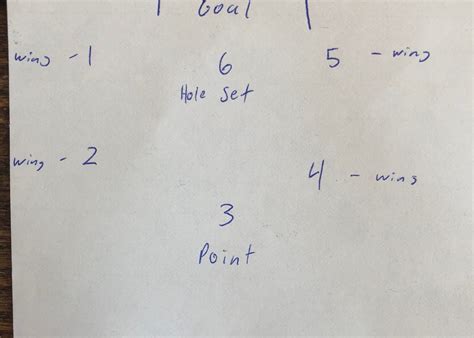 Goal
wing - 1
6
Hole Set
5 - wing
wing - 2
4 - wing
3
Point